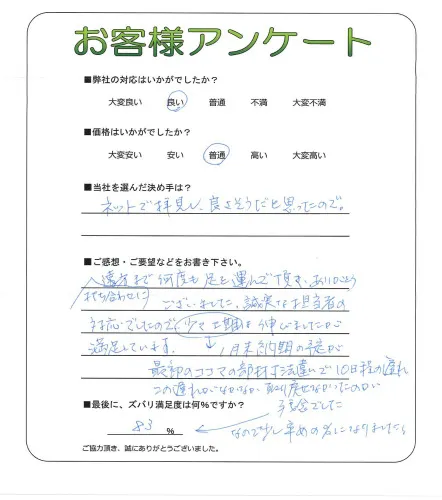 お客様アンケート
■弊社の対応はいかがでしたか？
大変良い 良い 普通 不満 大変不満
■価格はいかがでしたか？
大変安い 安い 普通 高い 大変高い
■当社を選んだ決め手は？
ネットで拝見し、良さそうだと思ったので。
■ご感想・ご要望などをお書き下さい。
遠方まで何度も足を運んで頂き、ありがとう
打ち合わせに
ございました、誠実な担当者の
対応でしたので 少々工期は伸びましたが
満足しています。 ↓ 月末納期の予定が
最初のココマの部材寸法違いで10日程の遅れ
この遅れがなかなか取り戻せなかったのが
■最後に、ズバリ満足度は何%ですか？
残念でした
83 %
なので少し辛めの%になりました
ご協力頂き、誠にありがとうございました。